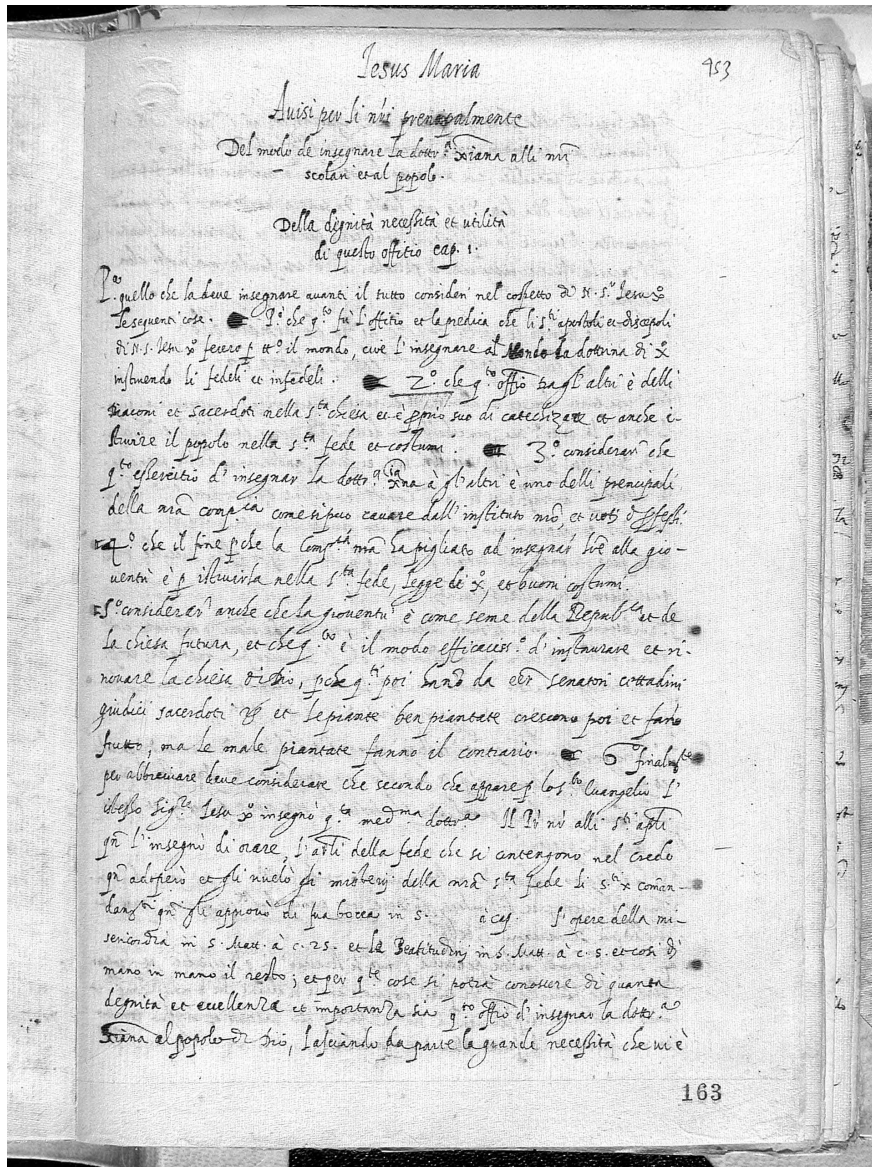 Jesus Maria
453
Avisi per li nr̃i prencipalmente
Del modo de insegnare la dottr.ª xĩana alli nr̃i
scolari et al popolo.
Della dignità necessità et utilità
di questo offitio cap. 1.
P.ª quello che la deve insegnare avanti il tutto consideri nel cospetto di N. S.r Jesu Xº
le sequenti cose. P.º che q.to fù l'offitio et la predica che li s.ti apostoli et discepoli
di N. S. Jesu Xº fecero p tt.º il mondo, cioè l'insegnare al Mondo la dottrina di Xº
instruendo li fedeli et infedeli. 2.º che q.to offiõ tra gl'altri è delli
Diaconi et sacerdoti nella s.ta chiesa et è proprio suo di catechizare et anche i-
struire il popolo nella s.ta fede et costumi. 3.º considerar che
q.to essercitio d'insegnar la dottr.ª xĩna à gl'altri è uno delli prencipali
della nr̃a comp.ia come si può cavare dall'instituto nrõ, et voti
4.º che il fine p che la Comp.ia nr̃a ha pigliato ad insegnar alla gio-
ventù è p istruirla nella s.ta fede, legge de Xº, et buoni costumi.
5.º considerar anche che la gioventù è come seme della Repub.ca et de
la chiesa futura, et che q.to è il modo efficaciss.º d'instaurare et ri-
novare la chiesa di Dio, pche q.ti poi hanno da eer̃ senatori cittadini
giudici sacerdoti et le piante ben piantate crescono poi et fano
frutto, ma le male piantate fanno il contrario. 6.º finalm.te
per abbreviare deve considerare che secondo che appare p lo s.to Euangelio l'
istesso Sig.re Jesu Xº insegnò q.ta med.ma dottr.ª Il Pr̃ nr̃ alli s.ti apli
qñ l'insegnò di orare, l'arli della fede che si contengono nel credo
qñ adoperò et gli rivelò li misterij della nr̃a s.ta fede li s.ti x coman-
dam.ti qñ gli approvò di sua bocca in S. à cap l'opere della mi-
sericordia in S. Matt. à c. 25. et le Beatitudini in S. Matt. à c. 5. et così di
mano in mano il resto; et per q.te cose si potrà conoscere di quanta
degnità et eccellenza et importanza sia q.to offiõ d'insegnar la dottr.ª
xĩana al popolo di Dio, lasciando da parte la grande necessità che vi è
163